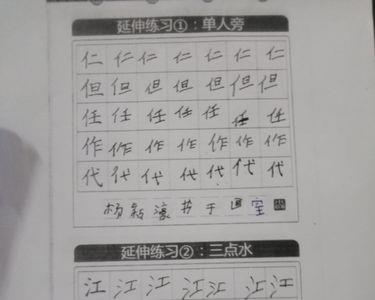 延伸练习①:单人旁
仁 仁 仁 仁 仁 仁 仁
但 但 但 但 但 但 但
任 任 任 任 任 任 任
作 作 作 作 作 作 作
代 代 代 代 代 代 代
书于
延伸练习②:三点水
江 江 江 江 江 江 江